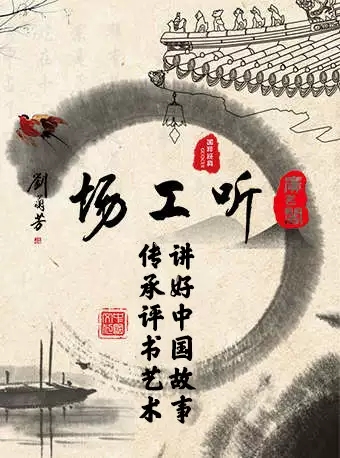 听工场
讲好中国故事
传承评书艺术
劉蘭芳